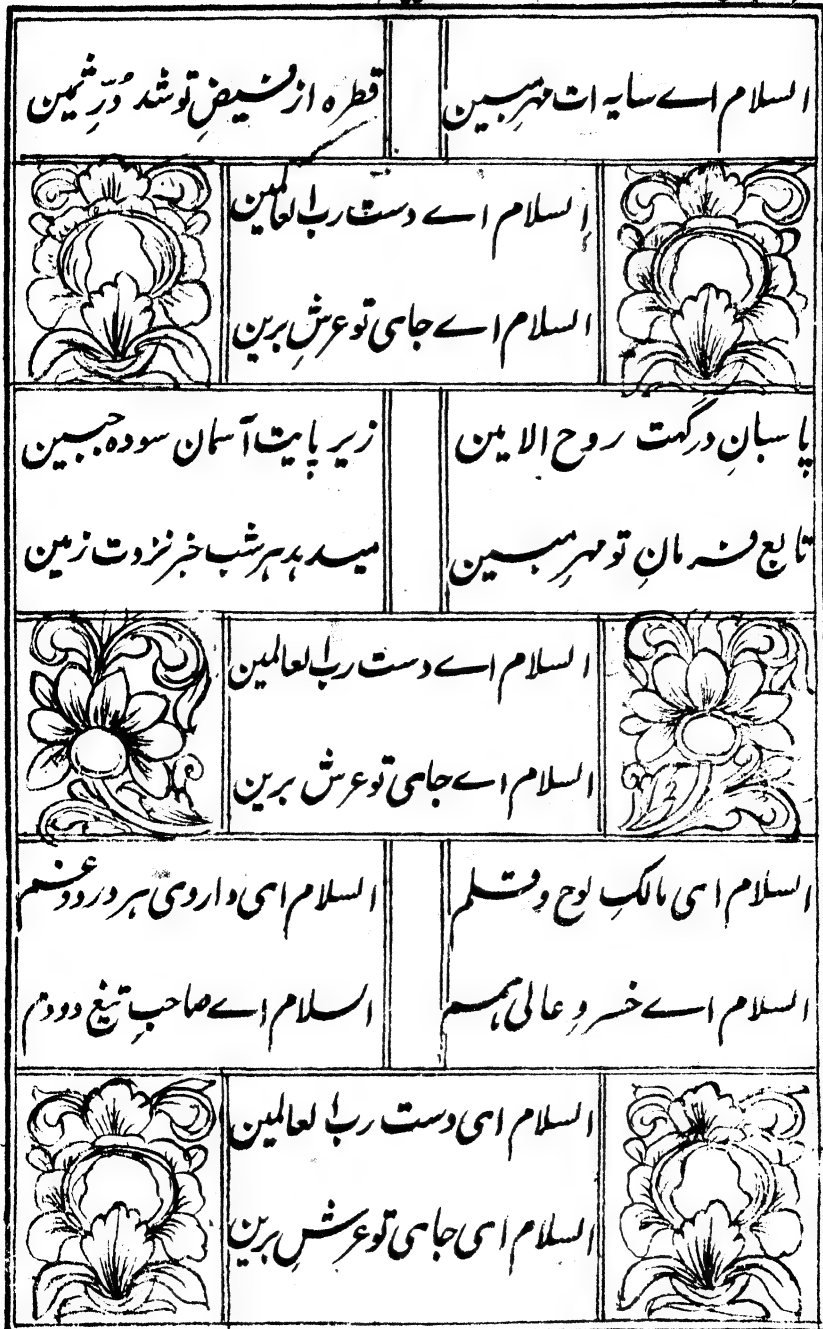 السلام اے سایہ ات مہرِ مبین
قطرہ از فیضِ تو شد دُرِّ ثمین
السلام اے دست رب العالمین
السلام اے جای تو عرشِ برین
پاسبانِ درگہت روح الامین
زیر پایت آسمان سودہ جبین
تابع فرمانِ تو مہرِ مبین
میدہد ہر شب خبر نزدت زمین
السلام اے دست رب العالمین
السلام اے جای تو عرشِ برین
السلام ای مالکِ لوح و قلم
السلام ای داروی ہر درد و غم
السلام اے خسروِ عالی ہمم
السلام اے صاحبِ تیغ دودم
السلام ای دست رب العالمین
السلام ای جای تو عرشِ برین